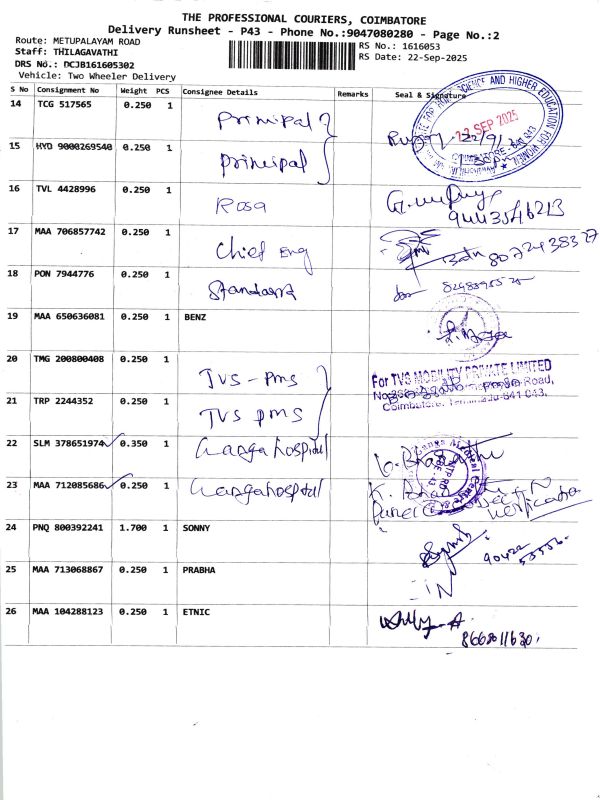 THE PROFESSIONAL COURIERS, COIMBATORE
Delivery Runsheet - P43 - Phone No.:9047080280 - Page No.:2
Route: METUPALAYAM ROAD
RS No.: 1616053
Staff: THILAGAVATHI
RS Date: 22-Sep-2025
DRS No.: DCJB161605302
Vehicle: Two Wheeler Delivery
S No Consignment No Weight PCS Consignee Details Remarks Seal & Signature
14 TCG 517565 0.250 1 Principal
22 SEP 2025
15 HYD 9000269540 0.250 1 Principal
16 TVL 4428996 0.250 1 Rosa
9443546213
17 MAA 706857742 0.250 1 Chief Eng
8072438327
18 PON 7944776 0.250 1 Standard
19 MAA 650636081 0.250 1 BENZ
20 TMG 200800408 0.250 1 TVS - PMS
For TVS MOBILITY PRIVATE LIMITED
Coimbatore, Tamilnadu-641 043.
21 TRP 2244352 0.250 1 TVS PMS
22 SLM 378651974 0.350 1 Ganga hospital
23 MAA 712085686 0.250 1 Ganga hospital
24 PNQ 800392241 1.700 1 SONNY
25 MAA 713068867 0.250 1 PRABHA
26 MAA 104288123 0.250 1 ETNIC
8668011630.